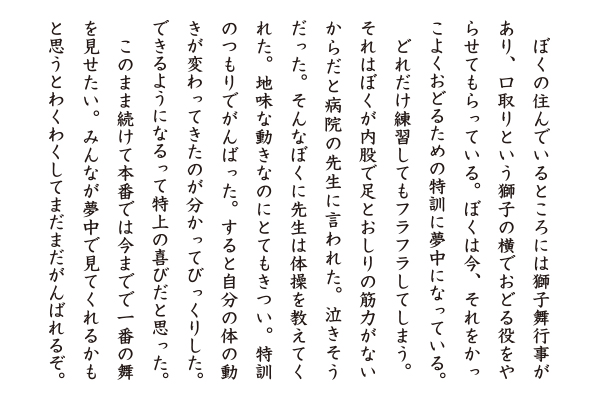 ぼくの住んでいるところには獅子舞行事が
あり、口取りという獅子の横でおどる役をや
らせてもらっている。ぼくは今、それをかっ
こよくおどるための特訓に夢中になっている。
どれだけ練習してもフラフラしてしまう。
それはぼくが内股で足とおしりの筋力がない
からだと病院の先生に言われた。泣きそう
だった。そんなぼくに先生は体操を教えてく
れた。地味な動きなのにとてもきつい。特訓
のつもりでがんばった。すると自分の体の動
きが変わってきたのが分かってびっくりした。
できるようになるって特上の喜びだと思った。
このまま続けて本番では今までで一番の舞
を見せたい。みんなが夢中で見てくれるかも
と思うとわくわくしてまだまだがんばれるぞ。